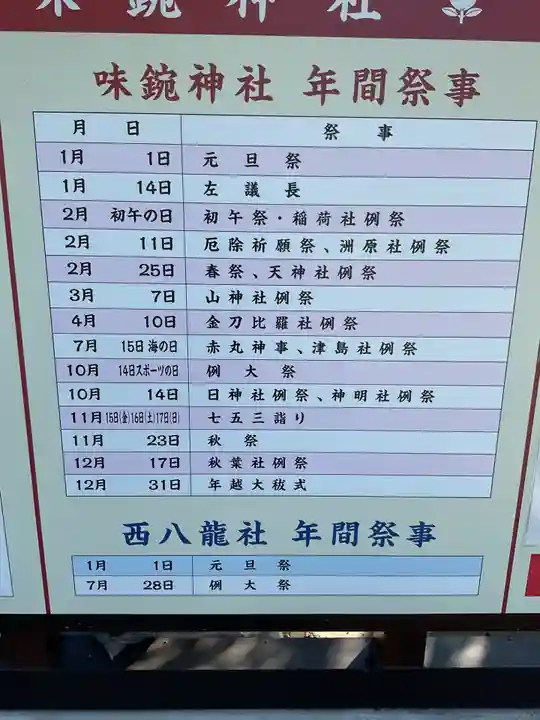 味鋺神社
味鋺神社 年間祭事
月 日 祭事
1月 1日 元旦祭
1月 14日 左議長
2月 初午の日 初午祭・稲荷社例祭
2月 11日 厄除祈願祭、洲原社例祭
2月 25日 春祭、天神社例祭
3月 7日 山神社例祭
4月 10日 金刀比羅社例祭
7月 15日海の日 赤丸神事、津島社例祭
10月 14日スポーツの日 例大祭
10月 14日 日神社例祭、神明社例祭
11月 15日(金)16日(土)17日(日) 七五三詣り
11月 23日 秋祭
12月 17日 秋葉社例祭
12月 31日 年越大秡式
西八龍社 年間祭事
1月 1日 元旦祭
7月 28日 例大祭